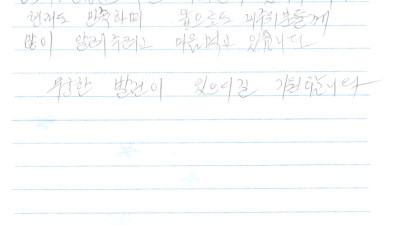 현재도 만족하며 앞으로도 내주위분들께
많이 알려주려고 마음먹고 있습니다.
무궁한 발전이 있으시길 기원합니다